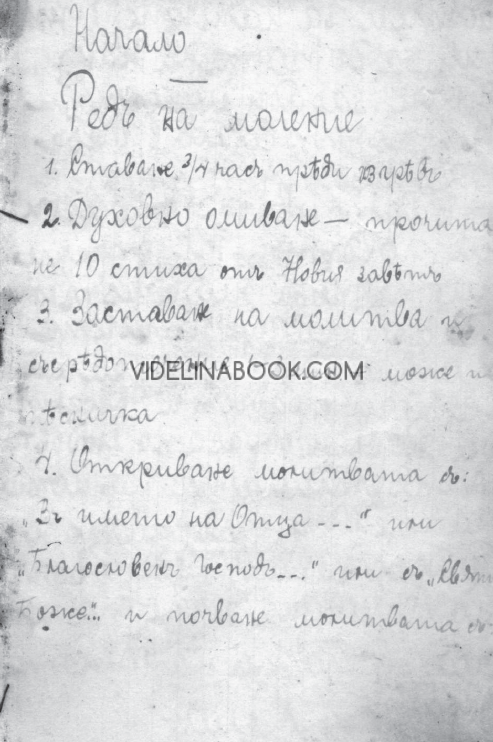 Начало
Редъ на моление
1. Ставане 3/4 часъ прѣди изгрѣвъ
2. Духовно омиване — прочита
не 10 стиха отъ Новия завѣтъ
3. Заставане на молитва и
може
VIDELINABOOK.COM
пѣсничка
4. Откриване молитвата съ:
„Въ името на Отца - - -“ или
„Благословенъ Господь - - -“ или съ „Святи
Боже..“ и почване молитвата съ